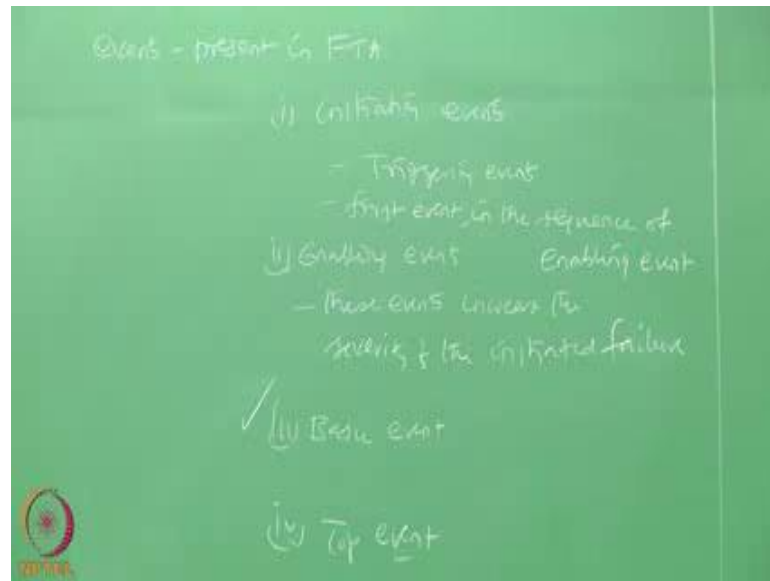 Events - present in FTA
(i) initiating events
- Triggering event
- first event in the sequence of
(ii) Enabling event Enabling event
- these events increase the
severity of the initiated failure
(iii) Basic event
(iv) Top event
NPTEL